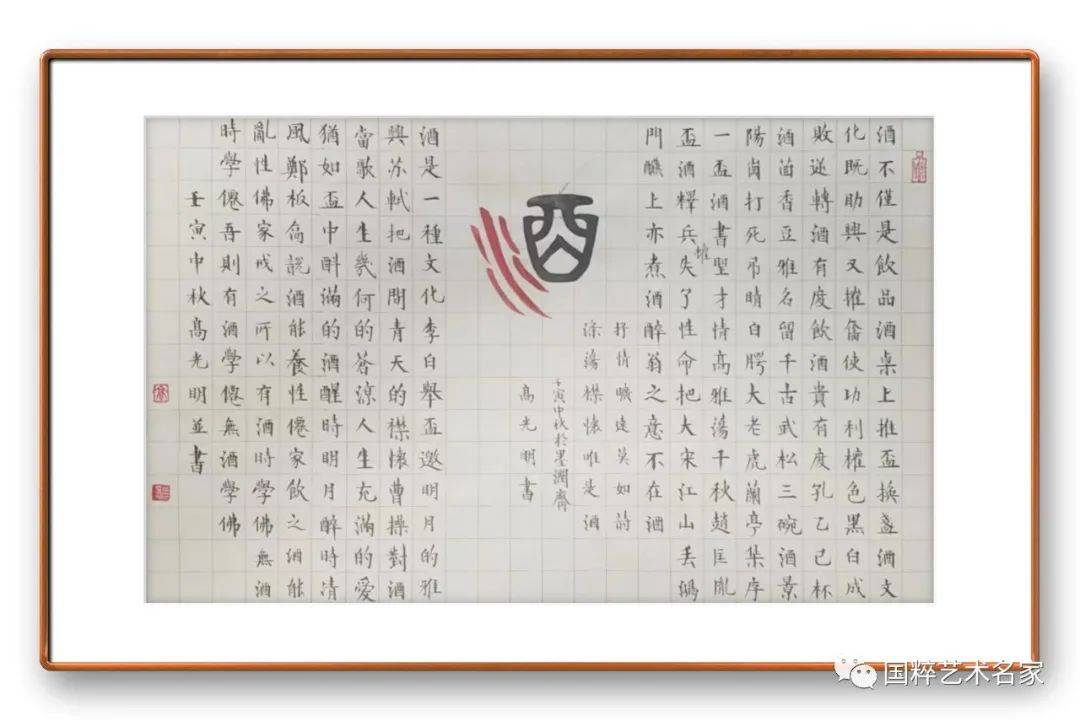 酒不僅是飲品酒桌上推盃換盞酒文
化既助興又搉奮使功利搉色黑白成
敗逆轉酒有度飲酒貴有度孔乙己杯
酒茴香豆雅名留千古武松三碗酒景
陽崗打死吊睛白腭大老虎蘭亭集序
一盃酒書聖才情高雅蕩千秋趙匡胤
盃酒釋兵搉失了性命把大宋江山丢鴻
門醮上亦煮酒醉翁之意不在酒
抒情曠達莫如詩
滌蕩襟懷唯是酒
壬寅中秋於墨潤齋
高光明書
酒
酒是一種文化李白舉盃邀明月的雅
興苏軾把酒問青天的襟懷曹操對酒
當歌人生幾何的蒼涼人生充滿的愛
猶如盃中斟滿的酒醒時明月醉時清
風鄭板喬說酒能養性僊家飲之酒能
亂性佛家戒之所以有酒時學佛無酒
時學僊吾則有酒學僊無酒學佛
壬寅中秋高光明並書
国粹艺术名家